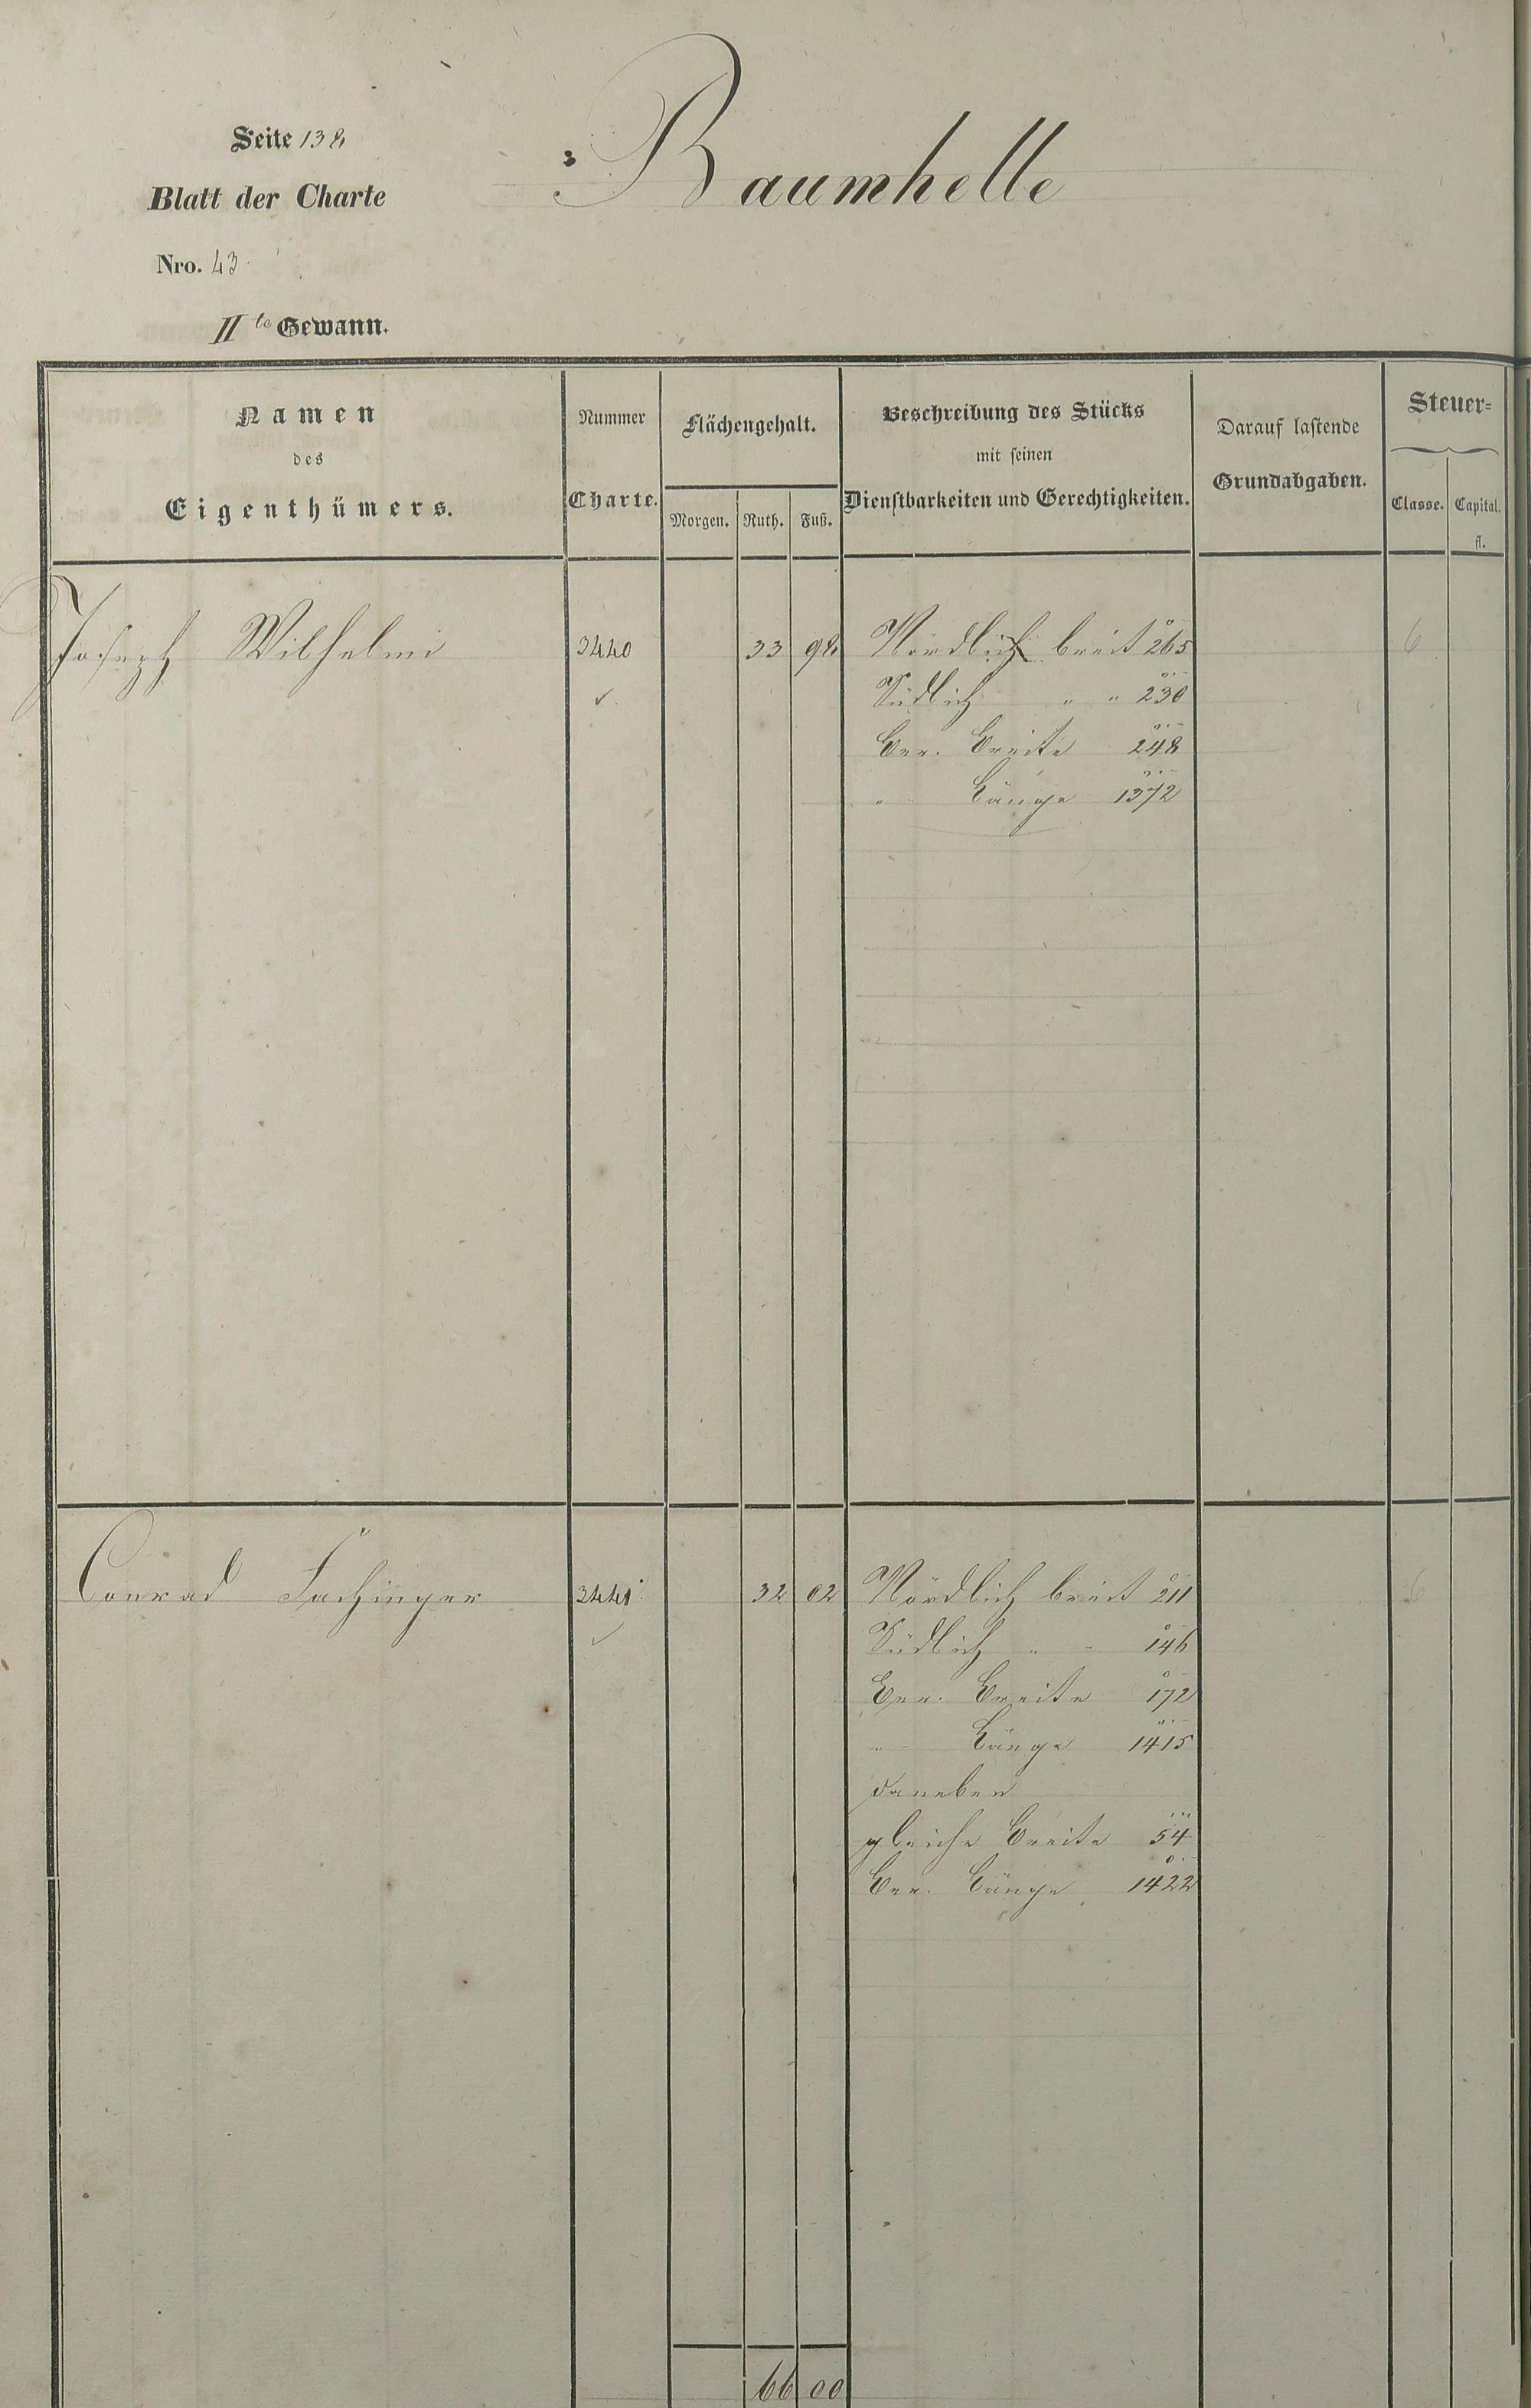 Seite 138
Blatt der Charte
Nro. 43
Baumhelle
IIte Gewann.
Namen
des
Eigenthümers.
Nummer
Charte.
Flächengehalt.
Morgen. Ruth. Fuß.
Beschreibung des Stücks
mit seinen
Dienstbarkeiten und Gerechtigkeiten.
Darauf lastende
Grundabgaben.
Steuer=
Classe. Capital.
fl.
Joseph Wilhelmi 3440 33 98 Nördlich breit 265 6
Südlich " " 230
Ber. Breite 248
" Länge 1372
Conrad Fachinger 3441 32 02 Nördlich breit 211 6
Südlich " " 146
Ber. Breite 172
" Länge 1415
daneben
gleiche Breite 54
Ber. Länge 1422
66 00